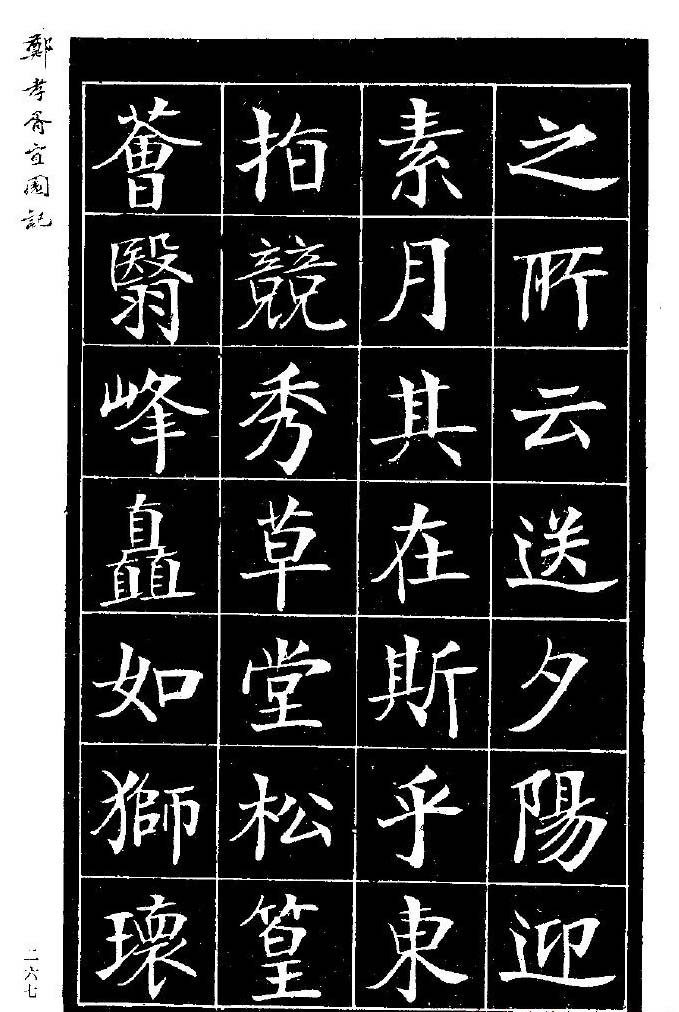 之所云送夕陽迎
素月其在斯乎東
拍競秀草堂松篁
薈翳峰矗如獅瓌
鄭孝胥宜園記
二六七